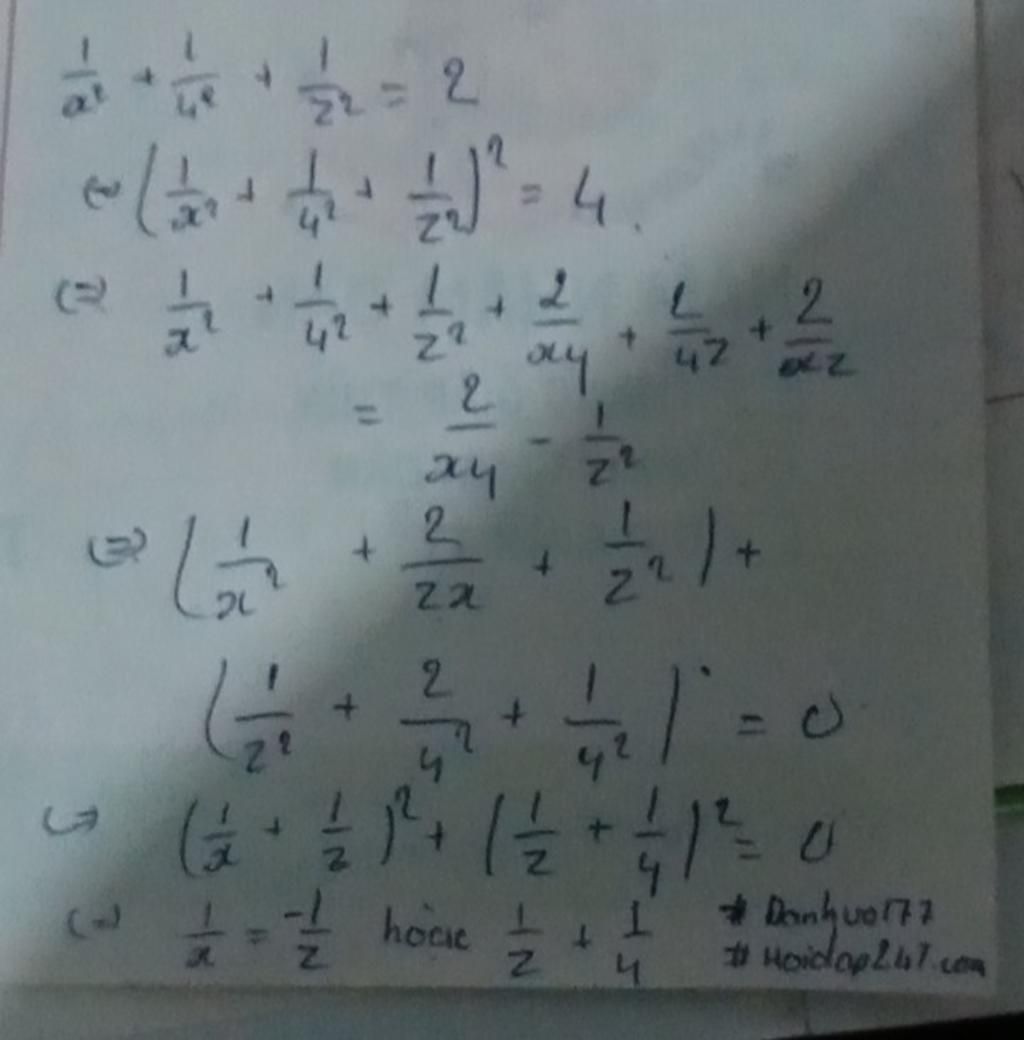 1/x² + 1/y² + 1/z² = 2
⇔ (1/x² + 1/y² + 1/z²)² = 4.
⇔ 1/x² + 1/y² + 1/z² + 2/xy + 2/yz + 2/xz
= 2/xy - 1/z²
⇔ (1/x² + 2/zx + 1/z²) +
(1/z² + 2/y² + 1/y²) = 0
⇔ (1/x + 1/z)² + (1/z + 1/y)² = 0
⇔ 1/x = -1/z hoặc 1/z + 1/y
# Danhvo177
# Hoidap247.com